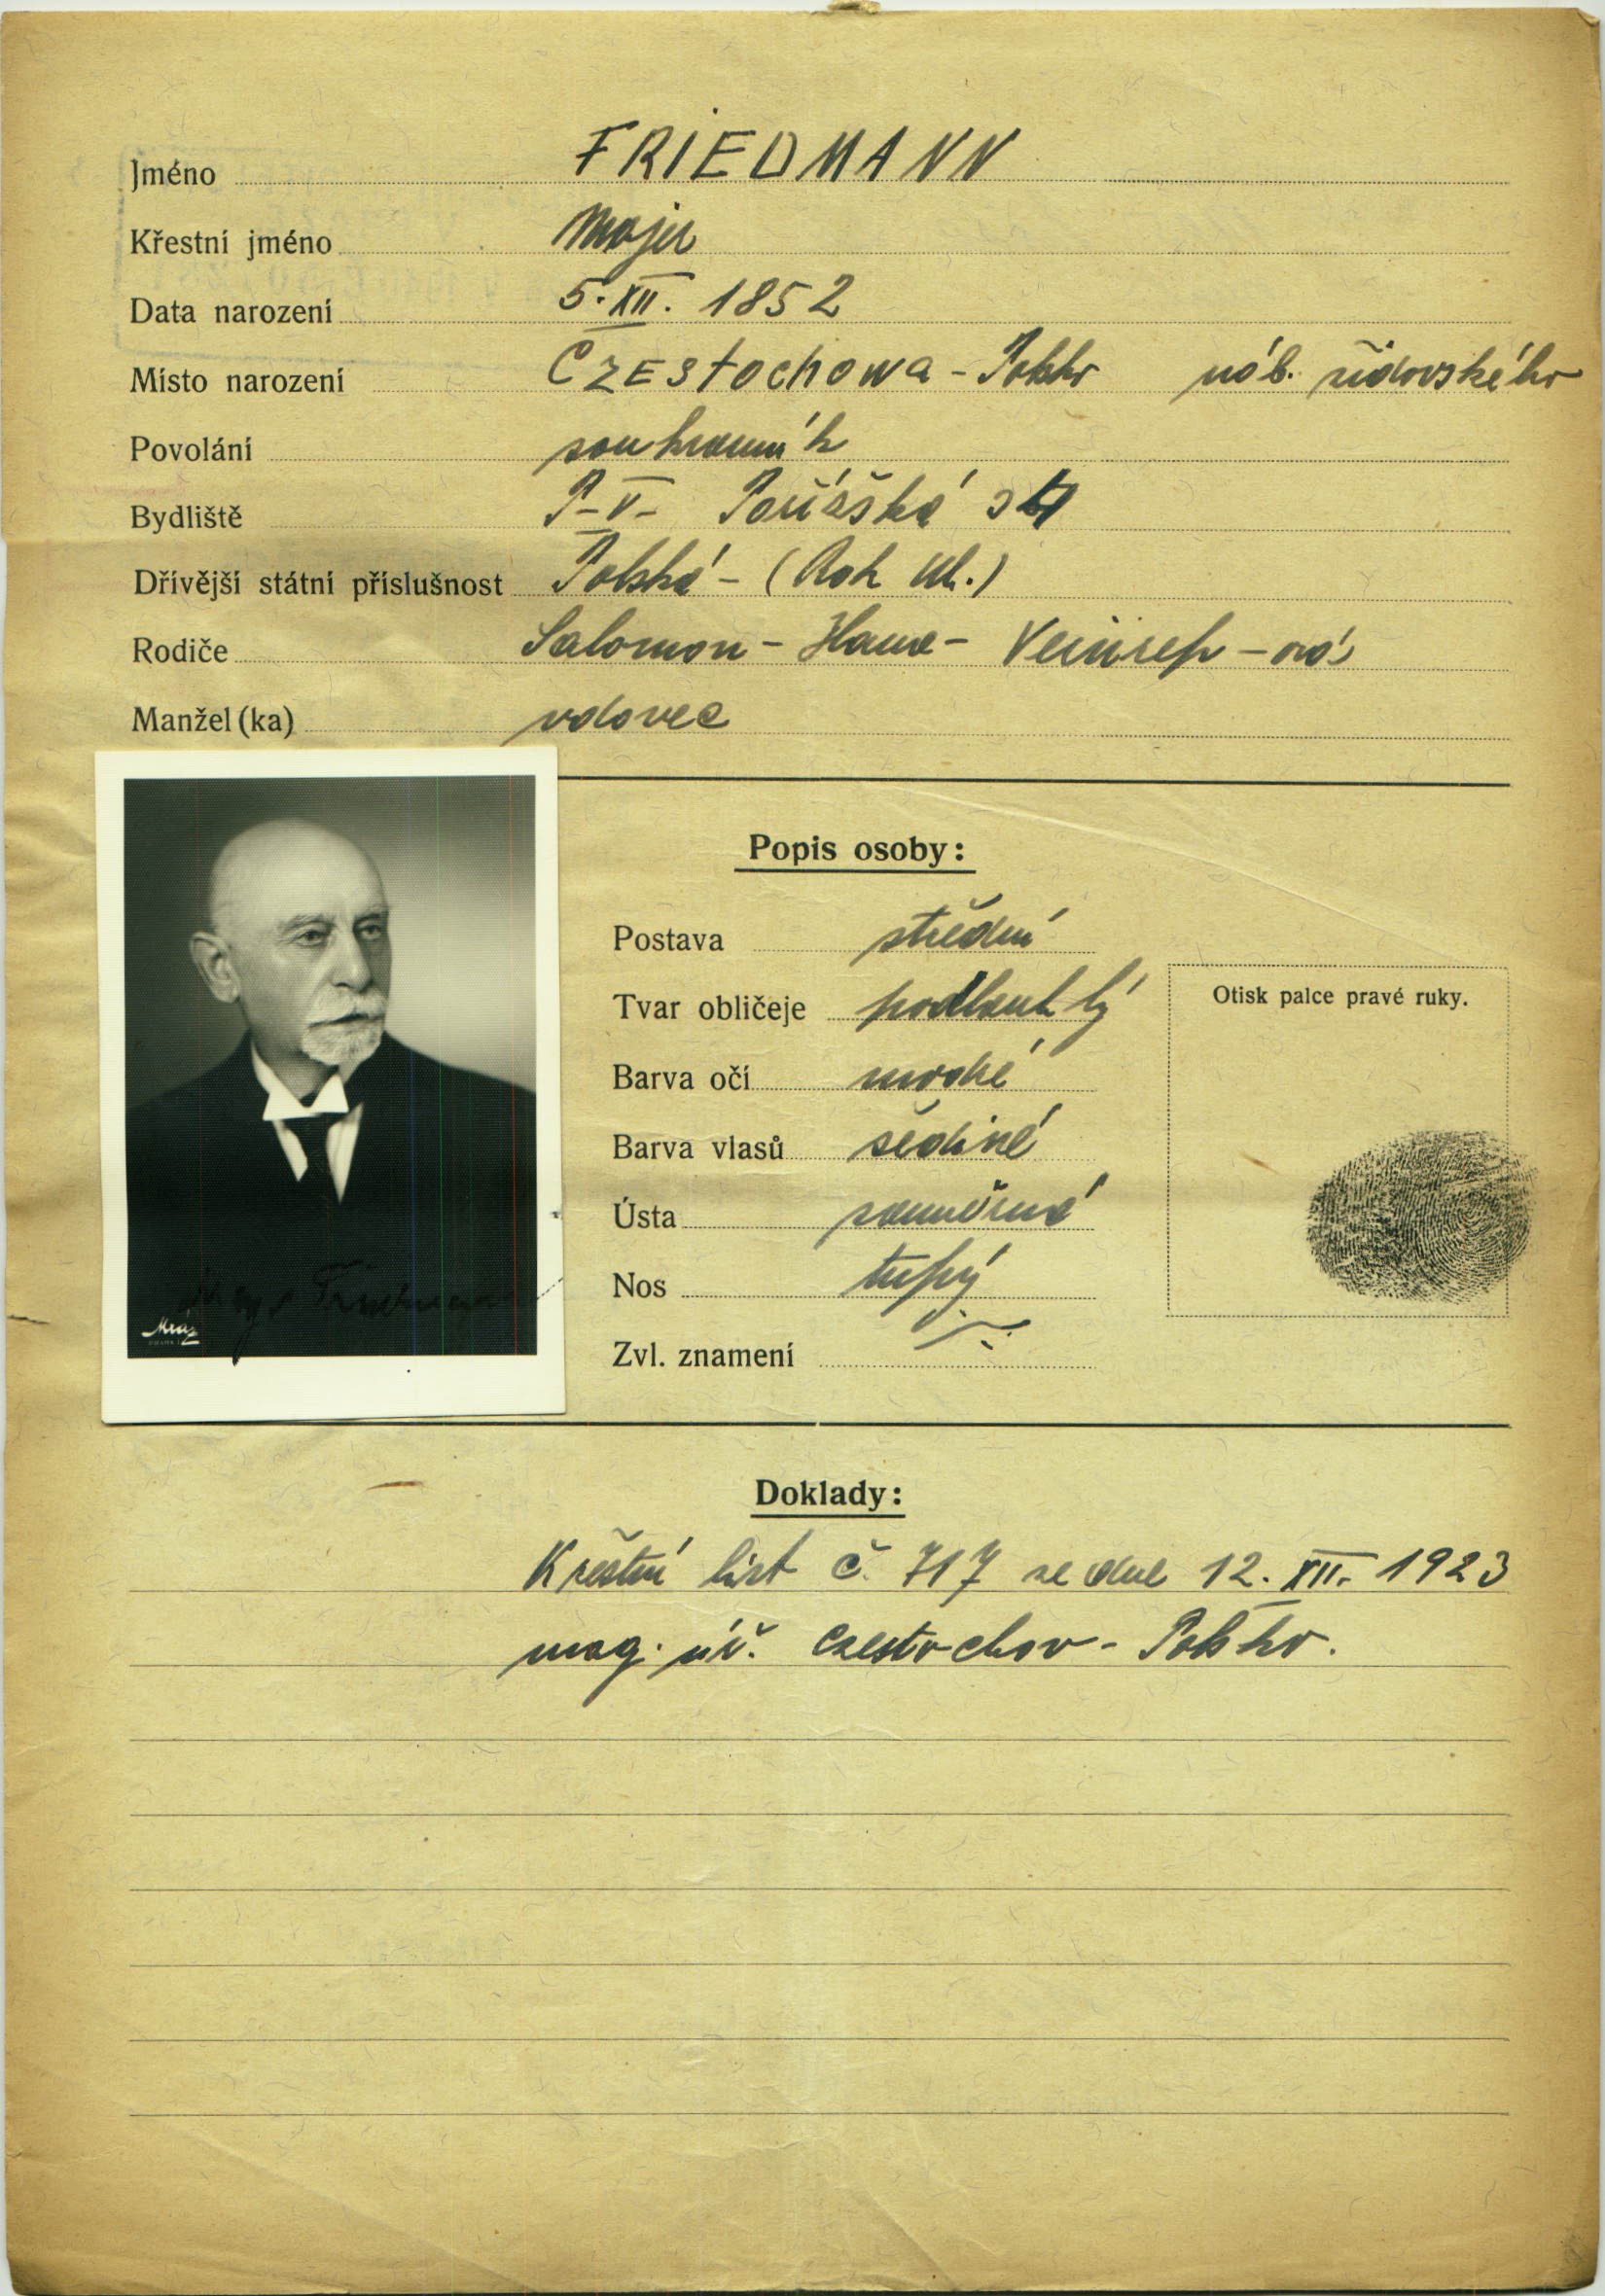 Jméno FRIEDMANN
Křestní jméno Majer
Data narození 5. XII. 1852
Místo narození CZEStochowa - Polsko náb. židovského
Povolání soukromník
Bydliště P-V- Pařížská
Dřívější státní příslušnost Polská - (Rak Uh.)
Rodiče Salomon -
Manžel (ka) vdovec
Popis osoby:
Postava střední
Tvar obličeje podlouhlý
Barva očí modré
Barva vlasů šediné
Ústa souměrná
Nos tupý
Zvl. znamení
Otisk palce pravé ruky.
Doklady:
Křestní list č. 717 ze dne 12. XII. 1923
mag. úř. Czestochov - Polsko.